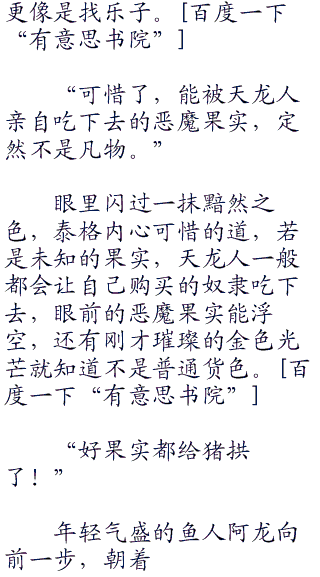 更像是找乐子。[百度一下
“有意思书院”]
“可惜了，能被天龙人
亲自吃下去的恶魔果实，定
然不是凡物。”
眼里闪过一抹黯然之
色，泰格内心可惜的道，若
是未知的果实，天龙人一般
都会让自己购买的奴隶吃下
去，眼前的恶魔果实能浮
空，还有刚才璀璨的金色光
芒就知道不是普通货色。[百
度一下“有意思书院”]
“好果实都给猪拱
了！”
年轻气盛的鱼人阿龙向
前一步，朝着